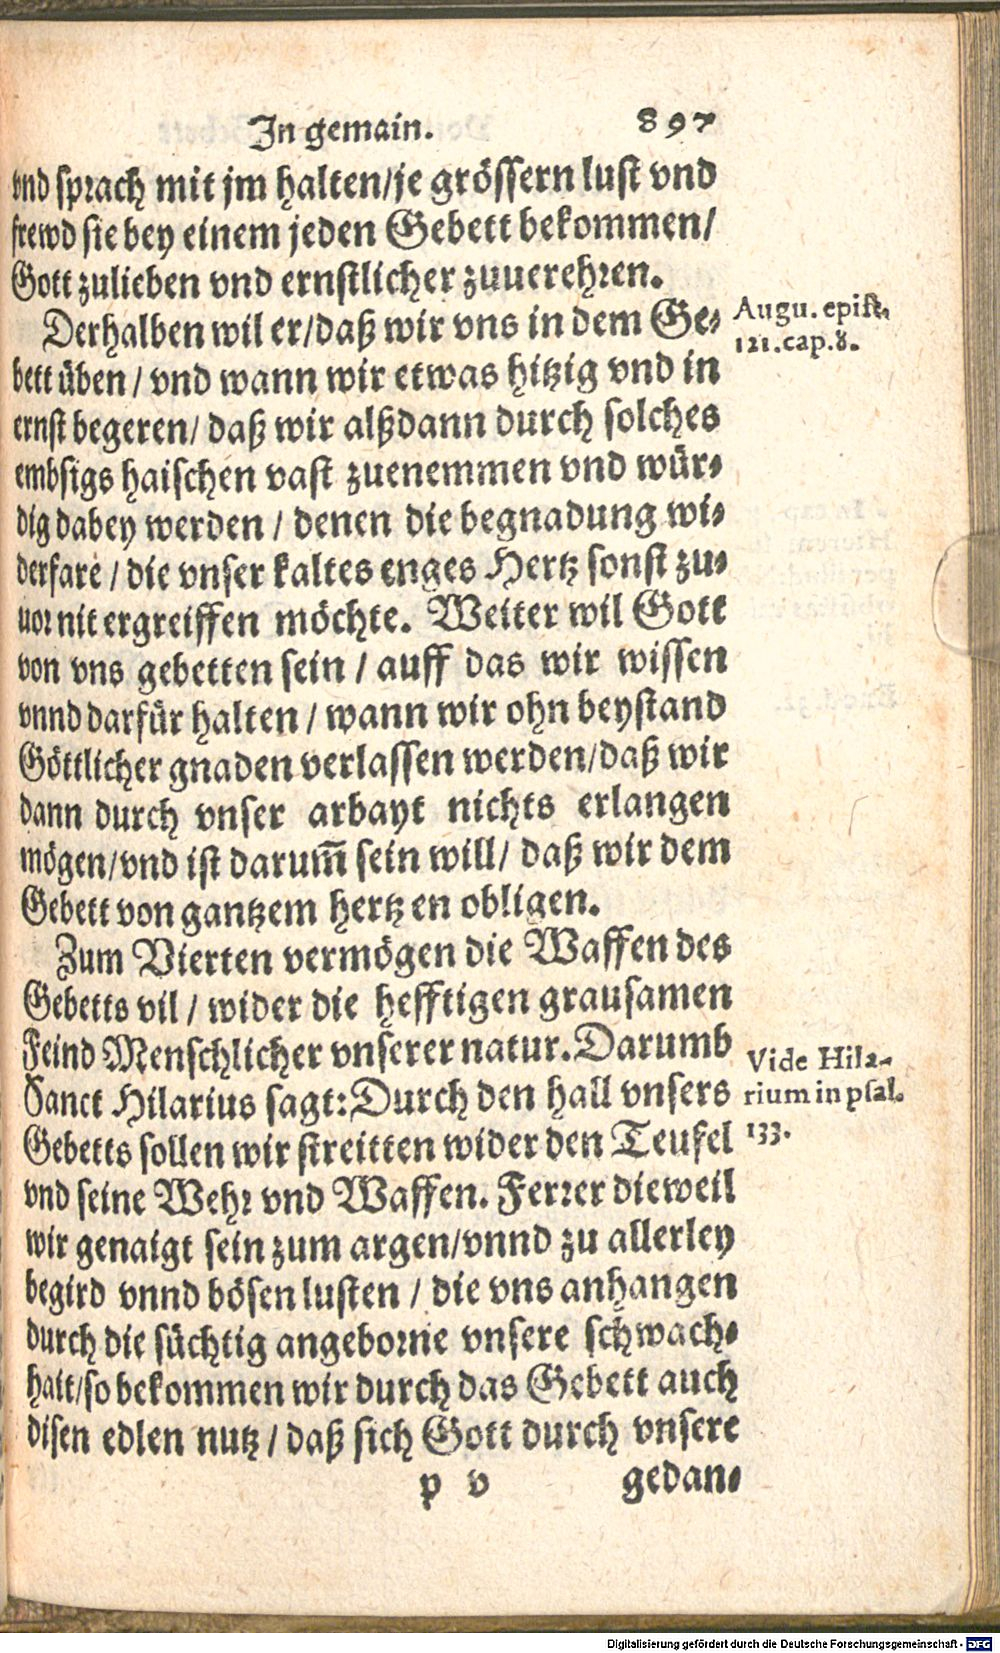 In gemain. 897
vnd sprach mit jm halten/je grössern lust vnd
frewd sie bey einem jeden Gebett bekommen/
Gott zulieben vnd ernstlicher zuuerehren.
Derhalben wil er/daß wir vns in dem Ge-
bett üben/ vnd wann wir etwas hitzig vnd in
ernst begeren/ daß wir alßdann durch solches
embsigs haischen vast zuenemmen vnd wür-
dig dabey werden / denen die begnadung wi-
derfarē / die vnser kaltes enges Hertz sonst zu-
uor nit ergreiffen möchte. Weiter wil Gott
von vns gebetten sein / auff das wir wissen
vnnd darfür halten / wann wir ohn beystand
Göttlicher gnaden verlassen werden/daß wir
dann durch vnser arbayt nichts erlangen
mögen/vnd ist darum̄ sein will/ daß wir dem
Gebett von gantzem hertzen obligen.
Zum Vierten vermögen die Waffen des
Gebetts vil / wider die hefftigen grausamen
Feind Menschlicher vnserer natur. Darumb
Sanct Hilarius sagt: Durch den hall vnsers
Gebetts sollen wir streitten wider den Teufel
vnd seine Wehr vnd Waffen. Ferrer dieweil
wir genaigt sein zum argen/vnnd zu allerley
begird vnnd bösen lusten / die vns anhangen
durch die süchtig angeborne vnsere schwach-
hait/so bekommen wir durch das Gebett auch
disen edlen nutz / daß sich Gott durch vnsere
p v gedan-
Augu. epist.
121.cap.8.
Vide Hila-
rium in psal.
133.
Digitalisierung gefördert durch die Deutsche Forschungsgemeinschaft - DFG